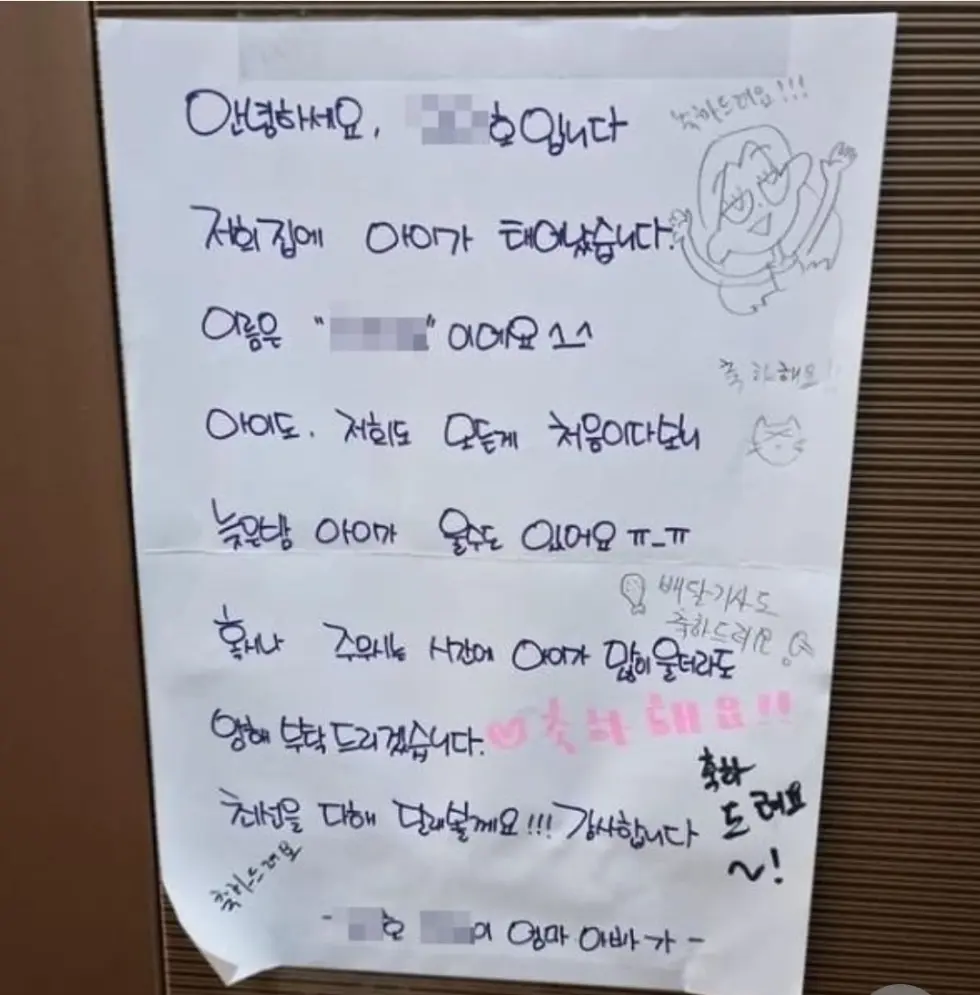 안녕하세요, 호입니다
축하드려요!!!
저희집에 아이가 태어났습니다.
이름은 " " 이에요 ^_^
축하해요!!
아이도, 저희도 모든게 처음이다보니
늦은밤 아이가 울수도 있어요 ㅠ_ㅠ
배달기사도
축하드려요
혹시나 주무시는 시간에 아이가 많이 울더라도
양해 부탁드리겠습니다.
♡축하해요!!
축하
드려요
~!
최선을 다해 달래볼게요!!! 감사합니다
축하드려요
- 호 이 엄마 아빠가 -